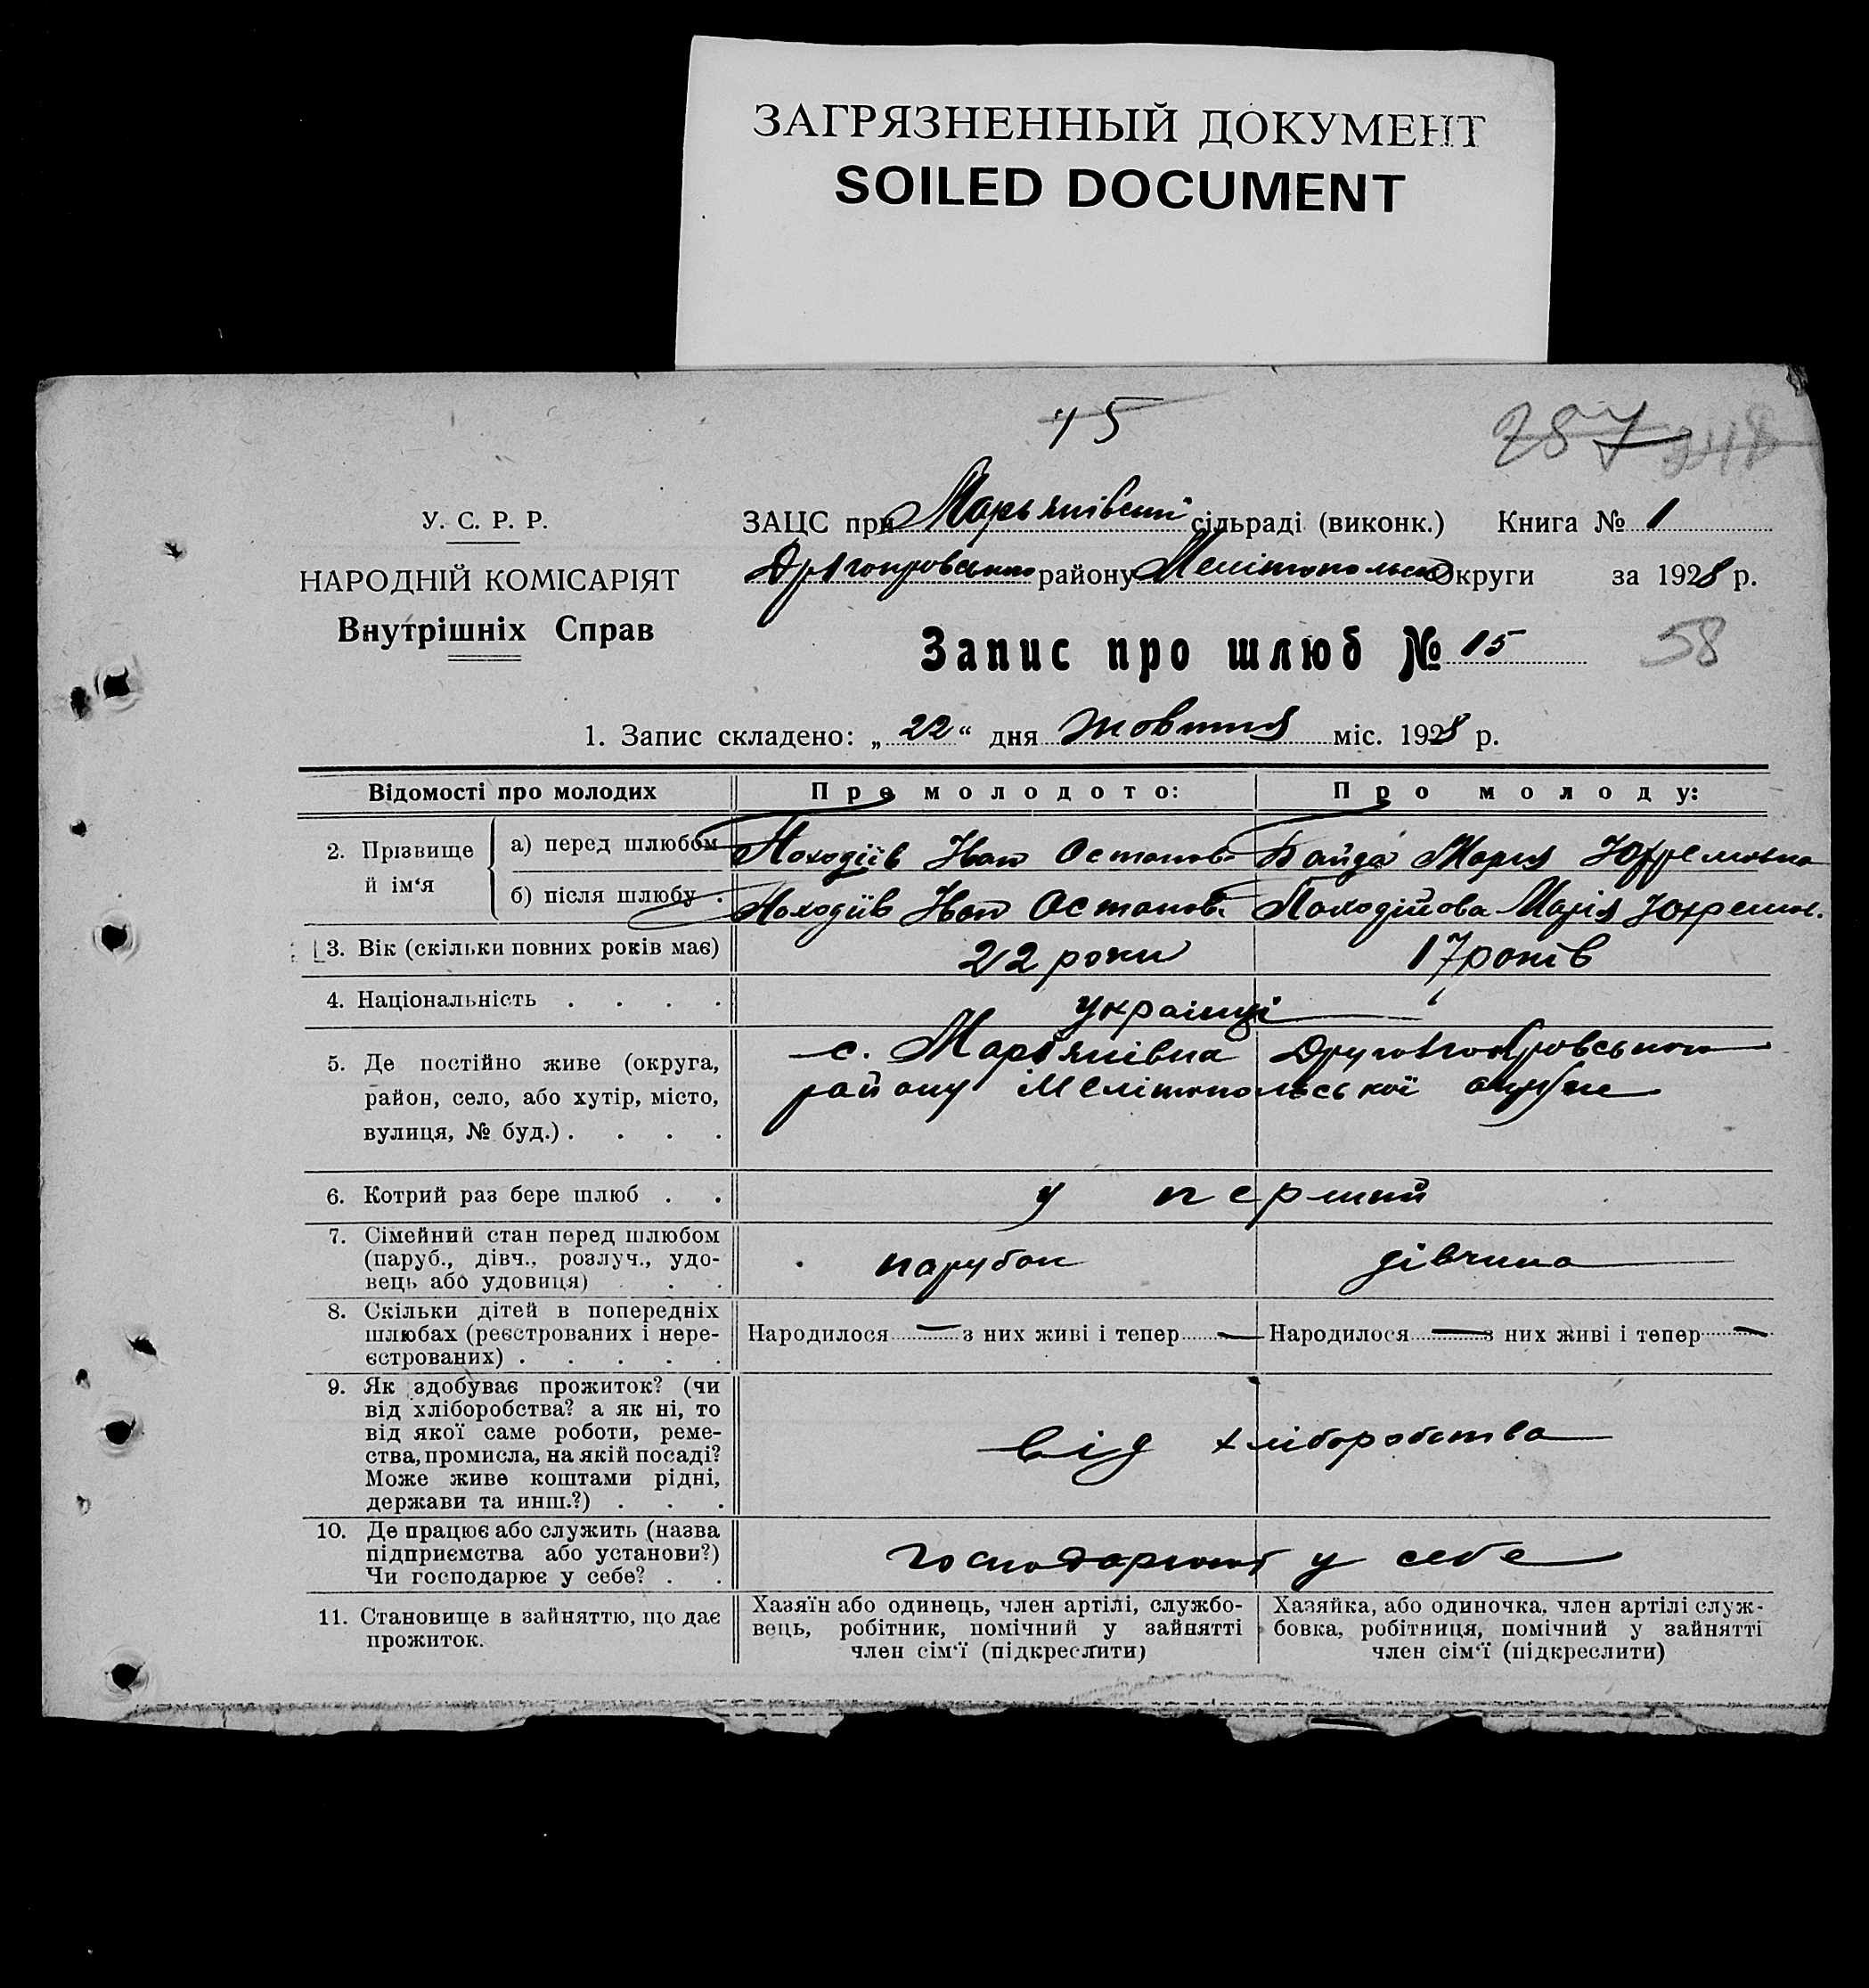 ЗАГРЯЗНЕННЫЙ ДОКУМЕНТ
SOILED DOCUMENT
15
287
У. С. Р. Р.
НАРОДНІЙ КОМІСАРІЯТ
Внутрішніх Справ
ЗАЦС при Марьянівській сільраді (виконк.) Книга № 1
району Мелітопольсь Округи за 1928 р.
Запис про шлюб № 15
58
1. Запис складено: „22“ дня жовтня міс. 1928 р.
Відомості про молодих
Про молодого:
Про молоду:
2. Прізвище й ім‘я
а) перед шлюбом
Походіїв Іван Остапов.
Байда Мария Юхремовна
б) після шлюбу .
Походіїв Іван Остапов.
Походійова Марія Юхремов.
3. Вік (скільки повних років має)
22 роки
17 років
4. Національність . . . .
українці
5. Де постійно живе (округа,
район, село, або хутір, місто,
вулиця, № буд.) . . . .
с. Мар‘янівна
району Мелітопольської округи
6. Котрий раз бере шлюб . .
у перший
7. Сімейний стан перед шлюбом
(паруб., дівч., розлуч., удо-
вець або удовиця) . . .
парубок
дівчина
8. Скільки дітей в попередніх
шлюбах (реєстрованих і нере-
єстрованих) . . . . .
Народилося — з них живі і тепер —
Народилося — з них живі і тепер —
9. Як здобуває прожиток? (чи
від хліборобства? а як ні, то
від якої саме роботи, реме-
ства, промисла, на якій посаді?
Може живе коштами рідні,
держави та инш.?) . . .
від хліборобства
10. Де працює або служить (назва
підприємства або установи?)
Чи господарює у себе? . .
господарюют у себе
11. Становище в зайняттю, що дає
прожиток.
Хазяїн або одинець, член артілі, службо-
вець, робітник, помічний у зайнятті
член сім‘ї (підкреслити)
Хазяйка, або одиночка, член артілі служ-
бовка, робітниця, помічний у зайнятті
член сім‘ї (підкреслити)